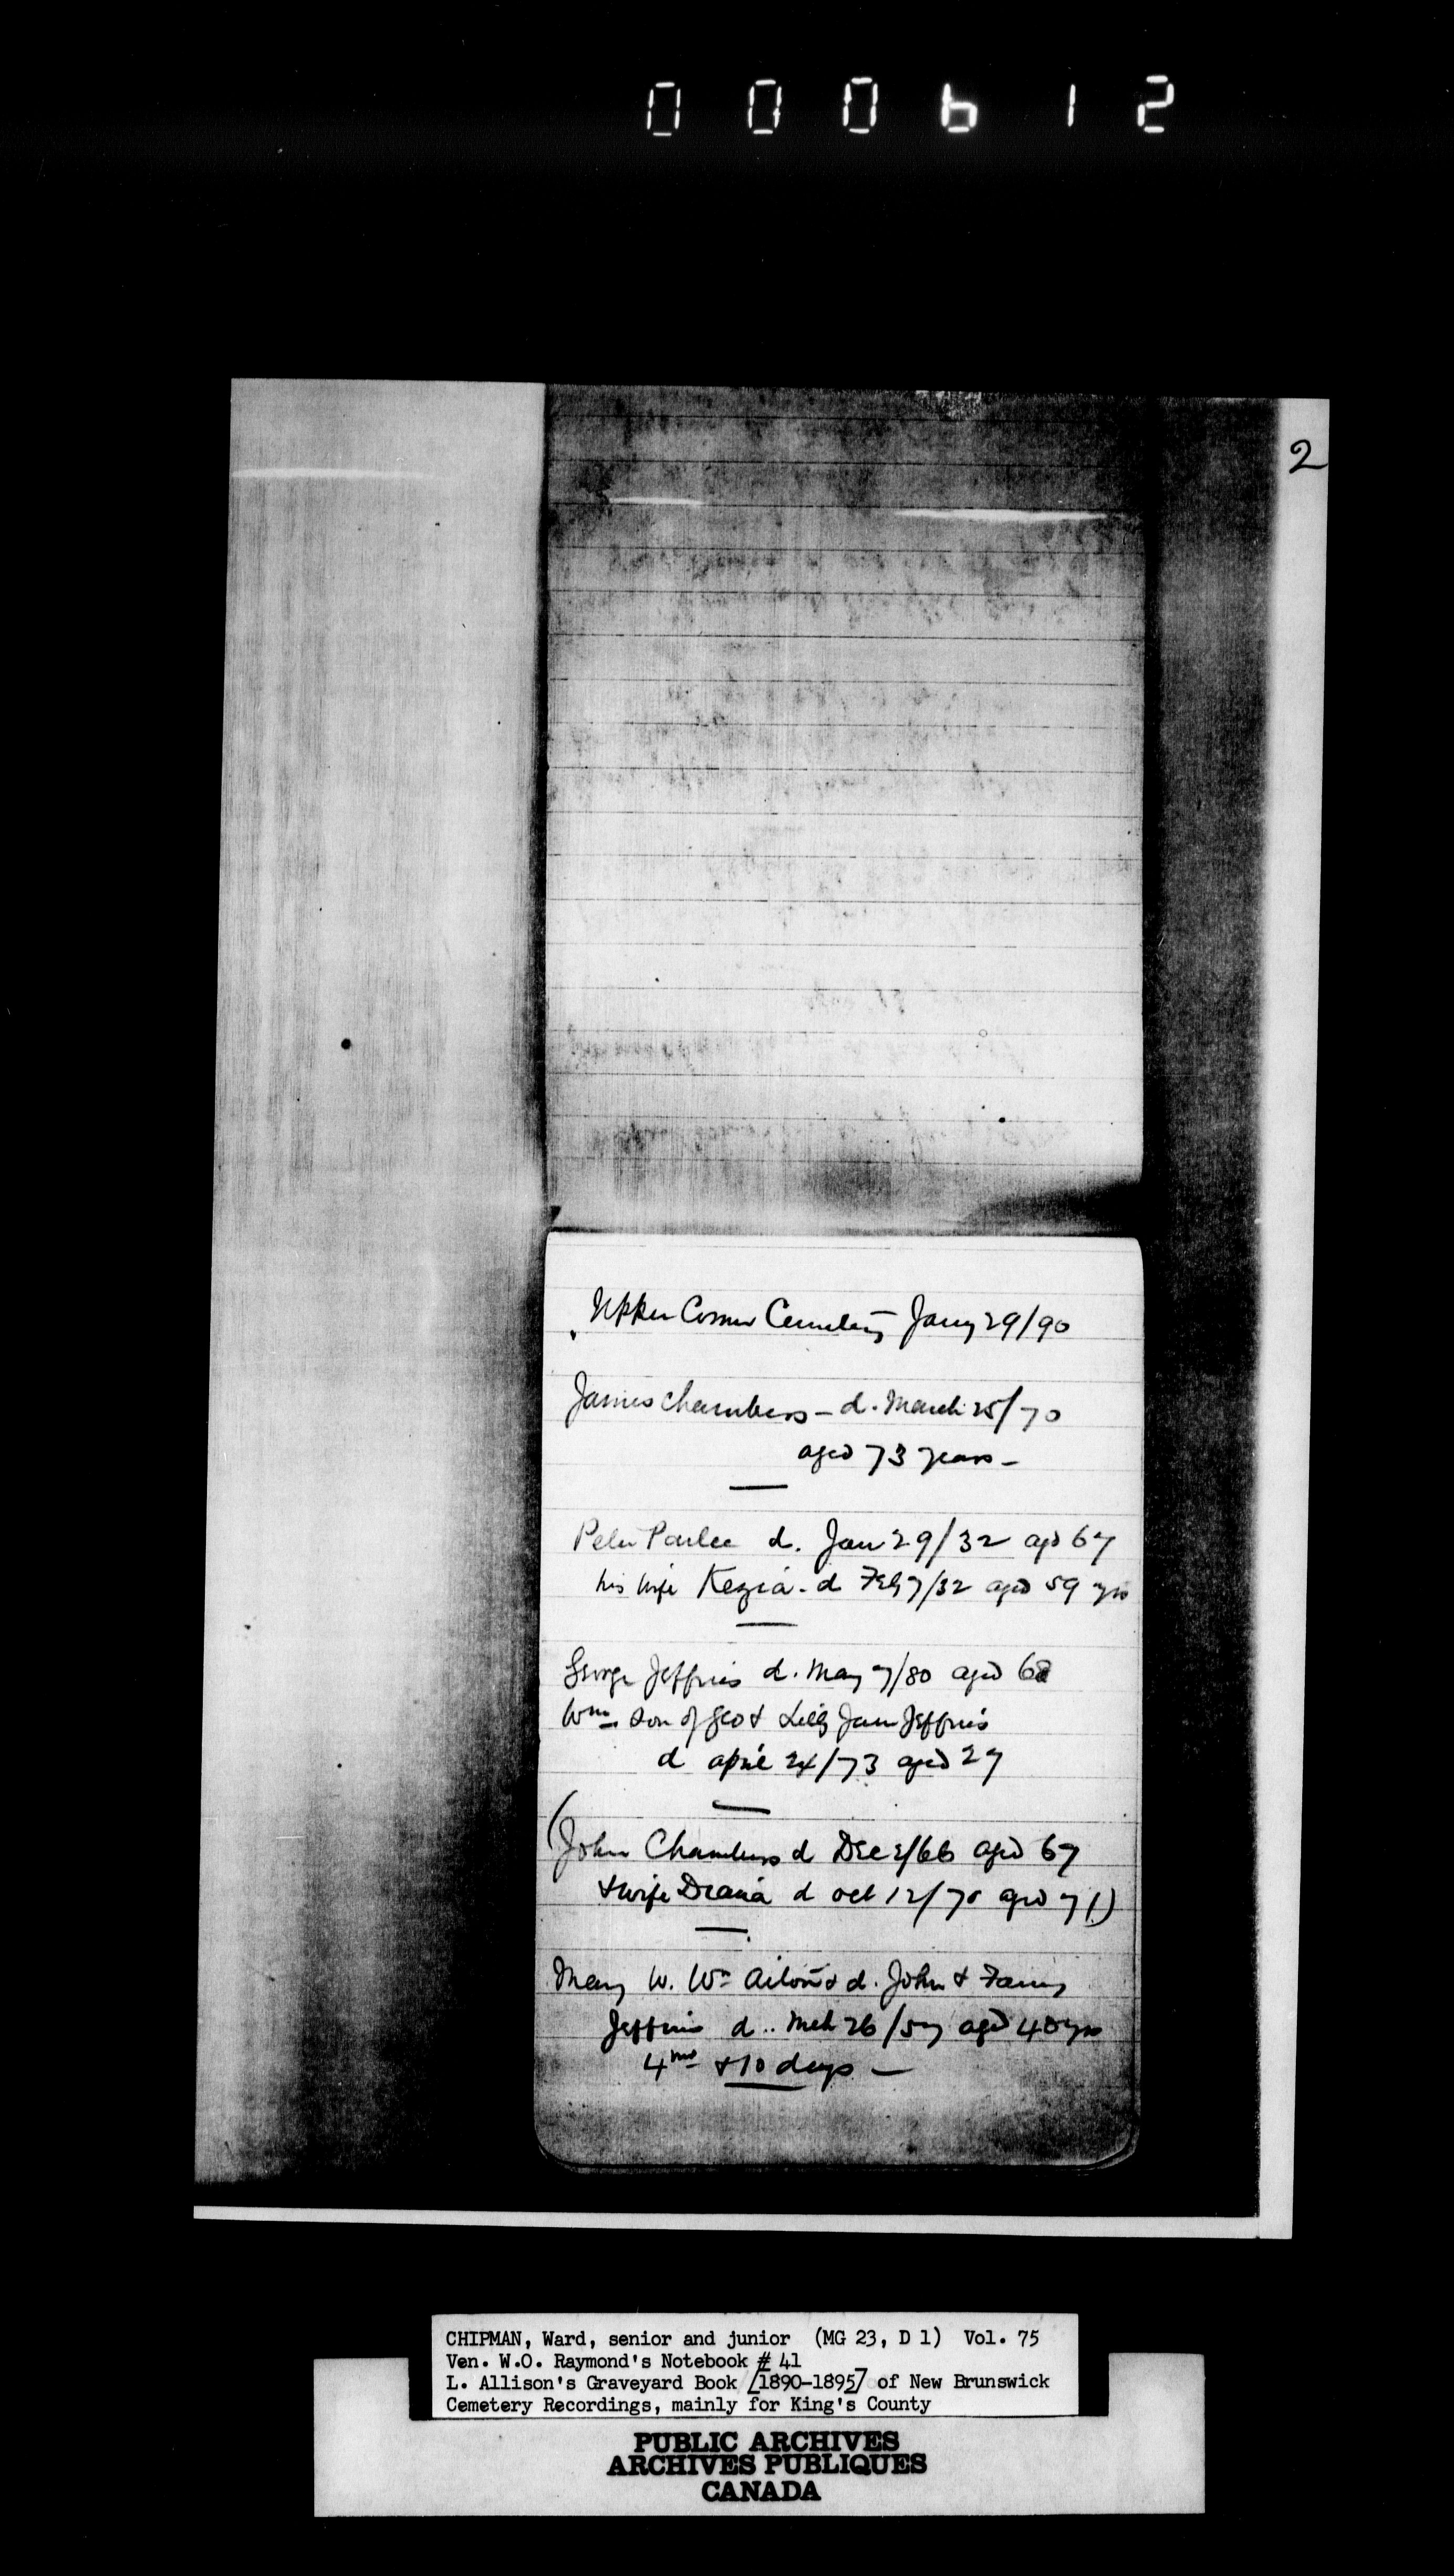 000612
2
Upper Corner Cemetery Jany 29/90
James Chambers - d. March 25/70
aged 73 years -
Peter Parlee d. Jan 29/32 agd 67
his wife Kezia - d Feby 7/32 aged 59 yrs
George Jeffries d. May 7/80 aged 68
Wm son of Geo & Jane Jeffries
d april 24/73 aged 27
(John Chambers d Dec 2/66 aged 67
& wife Diana d oct 12/70 aged 71)
Mary W. Wm & d. John & Fanny
Jeffries d.. Mch 26/57 aged 40 yrs
4 mos & 10 days -
CHIPMAN, Ward, senior and junior (MG 23, D 1) Vol. 75
Ven. W.O. Raymond's Notebook # 41
L. Allison's Graveyard Book [1890-1895] of New Brunswick
Cemetery Recordings, mainly for King's County
PUBLIC ARCHIVES
ARCHIVES PUBLIQUES
CANADA